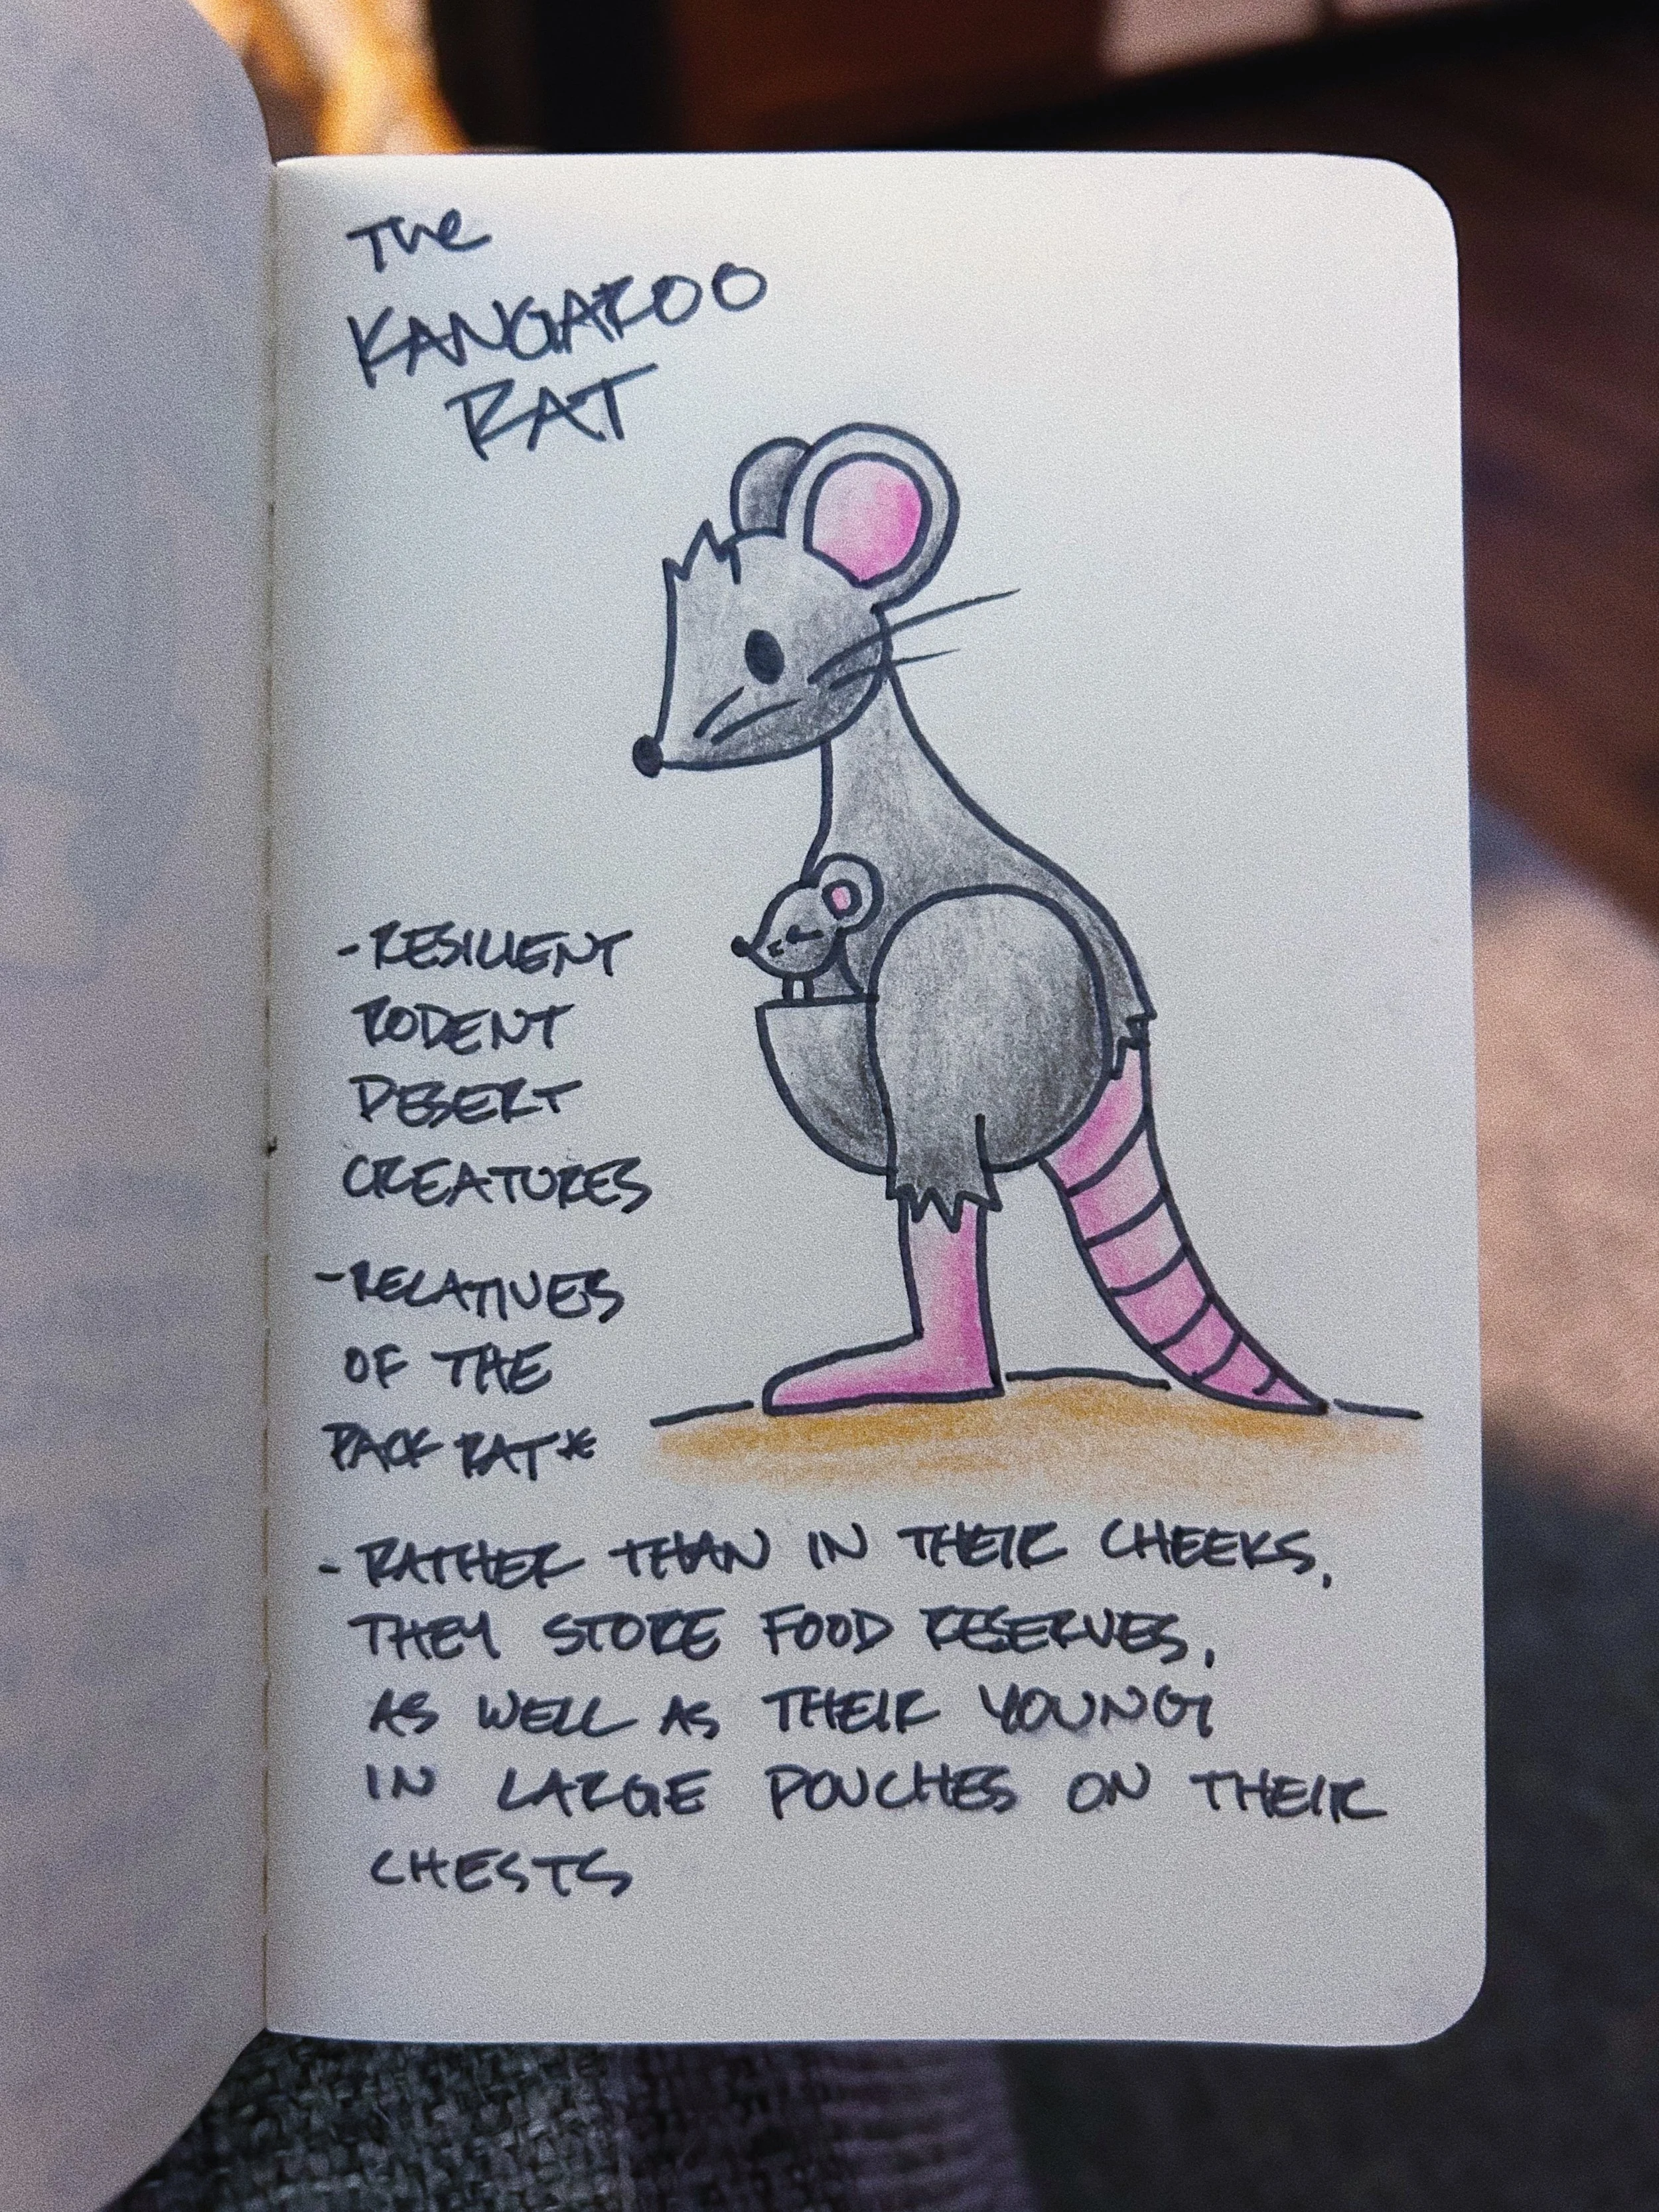 The
KANGAROO
RAT
- RESILIENT
RODENT
DESERT
CREATURES
- RELATIVES
OF THE
PACK RAT*
- RATHER THAN IN THEIR CHEEKS,
THEY STORE FOOD RESERVES,
AS WELL AS THEIR YOUNG
IN LARGE POUCHES ON THEIR
CHESTS